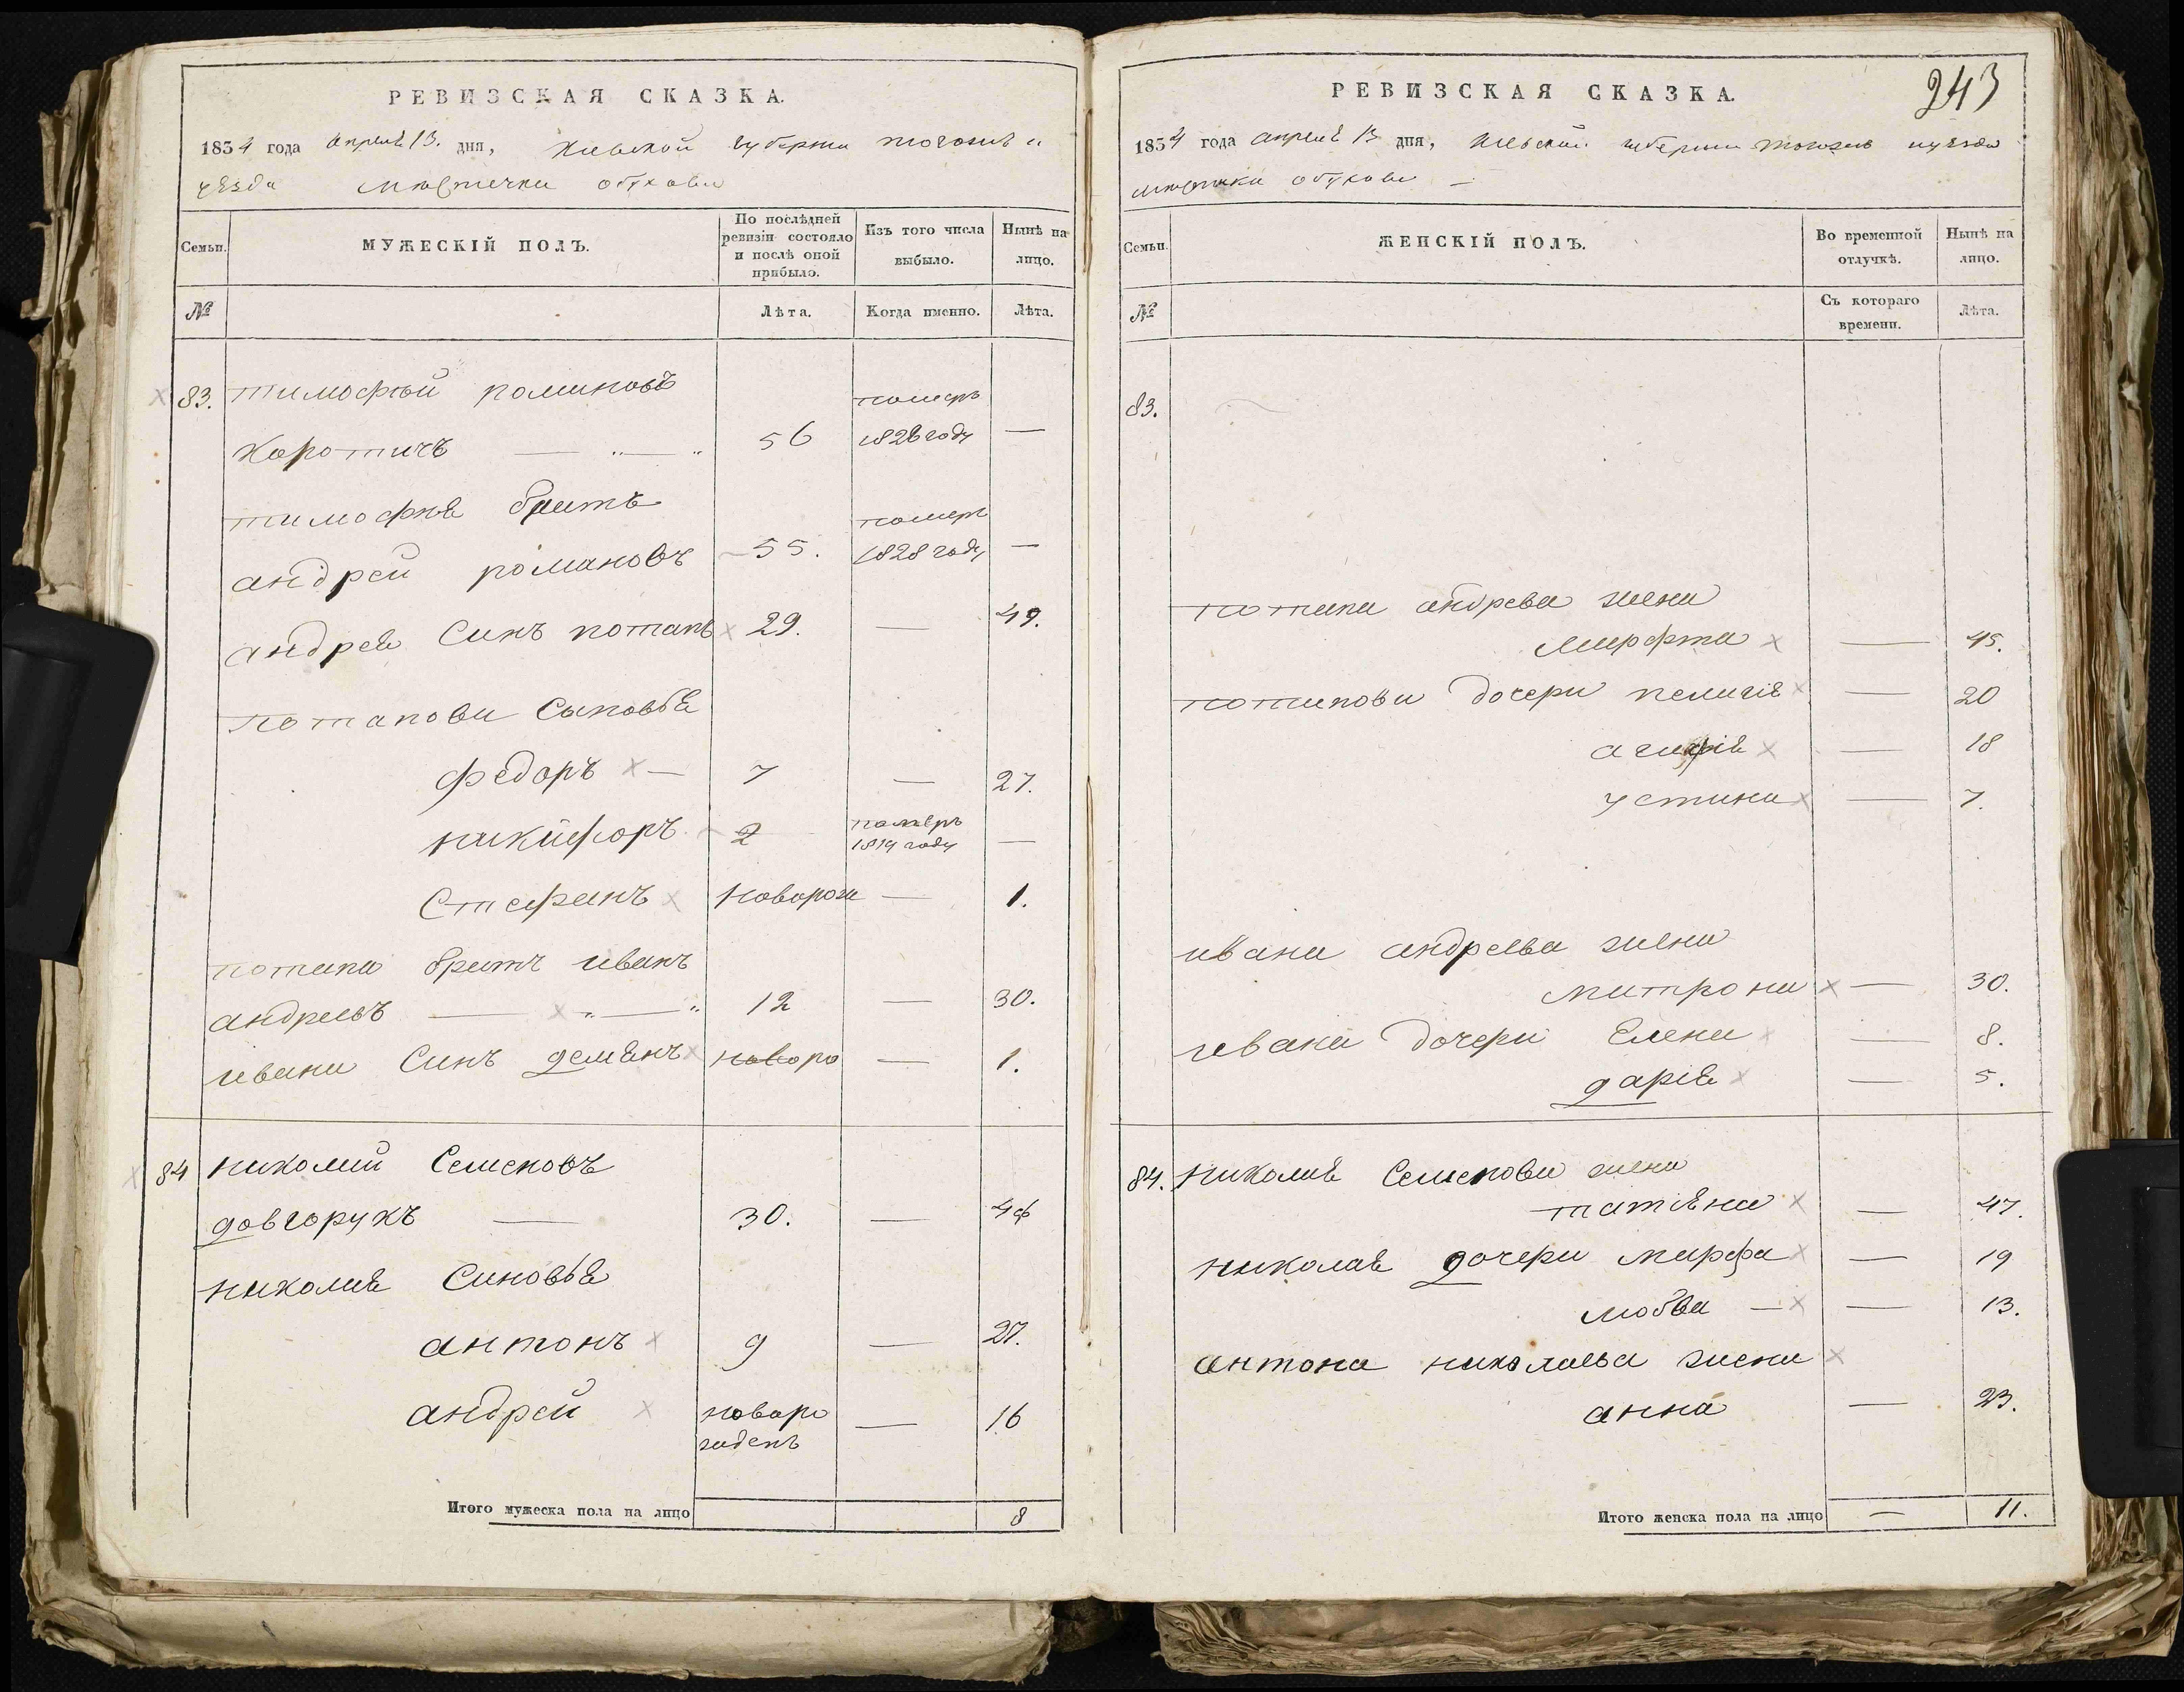 РЕВИЗСКАЯ СКАЗКА.
1834 года апреля 13. дня, Киевской губернии тогожъ
уезда местечка обухова
Семьи. МУЖЕСКІЙ ПОЛЪ. По послѣдней ревизіи состояло и послѣ оной прибыло. Изъ того числа выбыло. Нынѣ на лицо.
№ Лѣта. Когда именно. Лѣта.
83. тимофѣй романовъ
коротичъ 56 померъ 1826 году —
тимофея братъ
андрей романовъ 55. померъ 1828 году —
андрея Синъ потапъ 29. — 49.
потапови Сыновья
федоръ — 7 — 27.
никифоръ 2 померъ 1819 году —
Стефанъ новорож — 1.
потапа братъ иванъ
андреевъ 12 — 30.
ивана Синъ демянъ новоро — 1.
84 николай Семеновъ
довгорукъ — 30. —
николая Синовья
антонъ 9 — 27.
андрей новоро жденъ — 16
Итого мужеска пола на лицо 8
243
РЕВИЗСКАЯ СКАЗКА.
1834 года апреля 13 дня, Киевской губернии тогожъ уезда
местечка обухова —
Семьи. ЖЕНСКІЙ ПОЛЪ. Во временной отлучкѣ. Нынѣ на лицо.
№ Съ котораго времени. Лѣта.
83.
потапа андрева жена
марфта — 45.
потапови дочери пелагія — 20
агафія — 18
устина — 7.
ивана андреева жена
матрона — 30.
ивана дочери Елена — 8.
дарія — 5.
84. николая Семенова жена
татіяна — 47.
николая дочери марфа — 19
любва — — 13.
антона николаева жена
анна — 23.
Итого женска пола на лицо — 11.